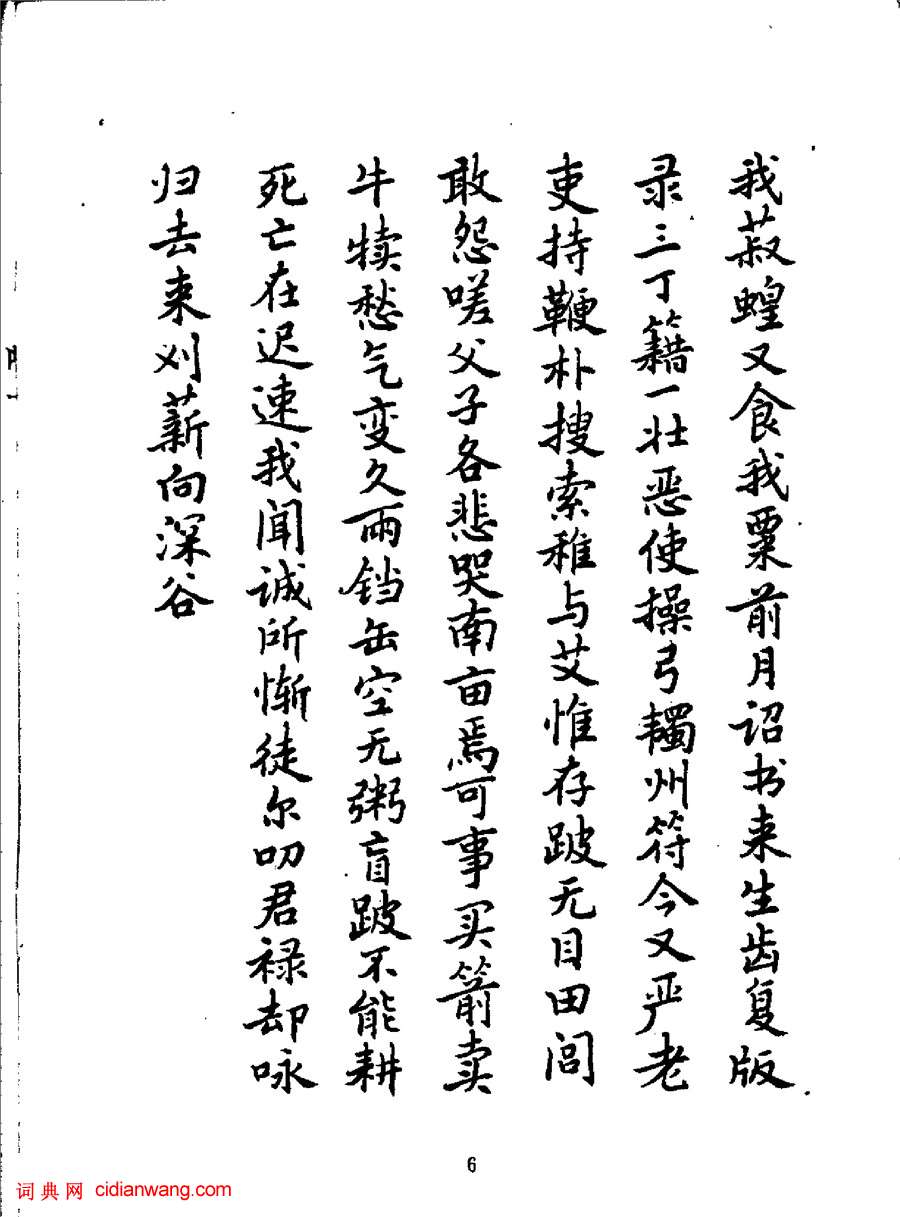 我菽蝗又食我粟前月诏书来生齿复版
录三丁籍一壮恶使操弓韣州符今又严老
吏持鞭朴搜索稚与艾惟存跛无目田闾
敢怨嗟父子各悲哭南亩焉可事买箭卖
牛犊愁气变久雨铛缶空无粥盲跛不能耕
死亡在迟速我闻诚所惭徒尔叨君禄却咏
归去来刈薪向深谷
6
词典网 cidianwang.com